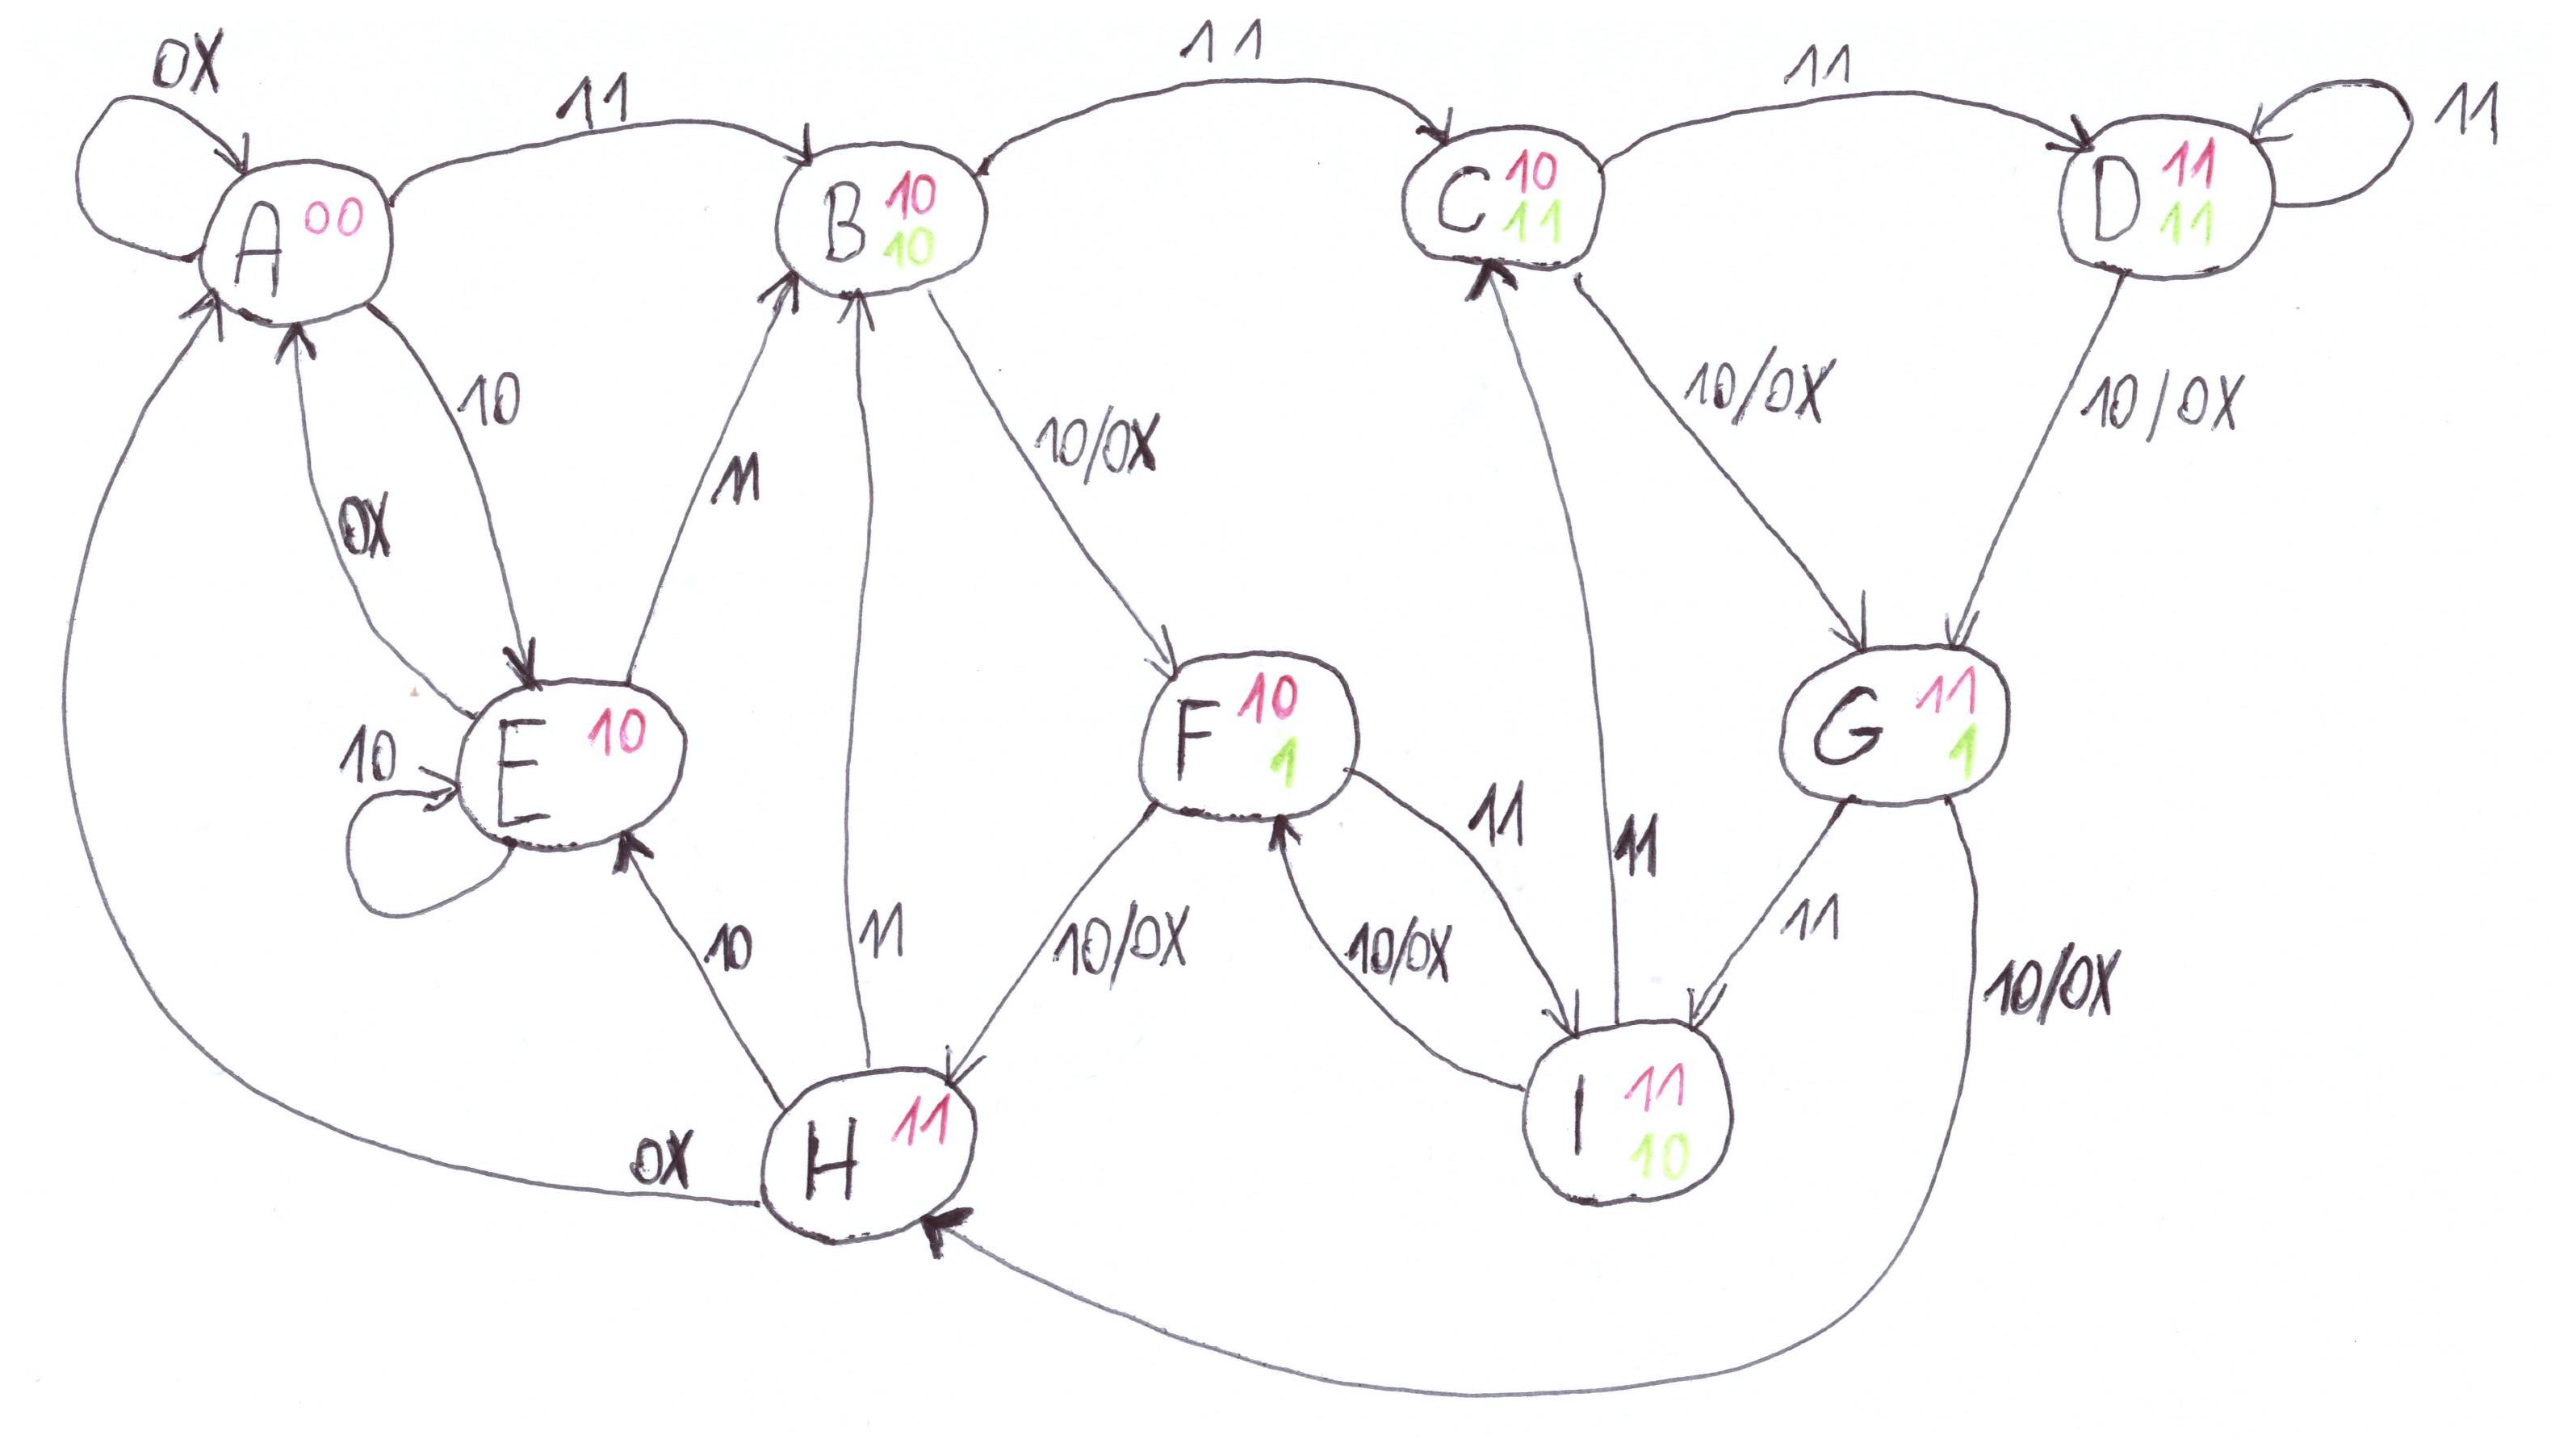 0X
11
11
11
11
A 00
B 10
10
C 10
11
D 11
11
10
0X
11
10/0X
10/0X
10/0X
E 10
10
F 10
1
G 11
1
11
11
10
11
10/0X
10/0X
11
10/0X
H 11
I 11
10
0X